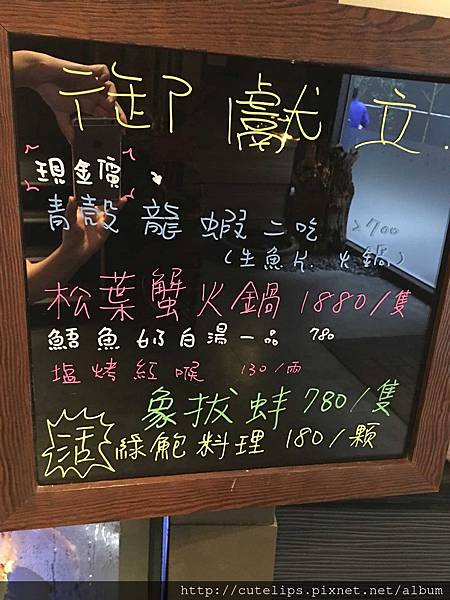 御獻立
現金價
青殼龍蝦二吃 2700
(生魚片.火鍋)
松葉蟹火鍋 1880/隻
鱈魚白湯一品 780
塩烤紅喉 130/兩
象拔蚌 780/隻
活 綠鮑料理 180/顆
http://cutelips.pixnet.net/album